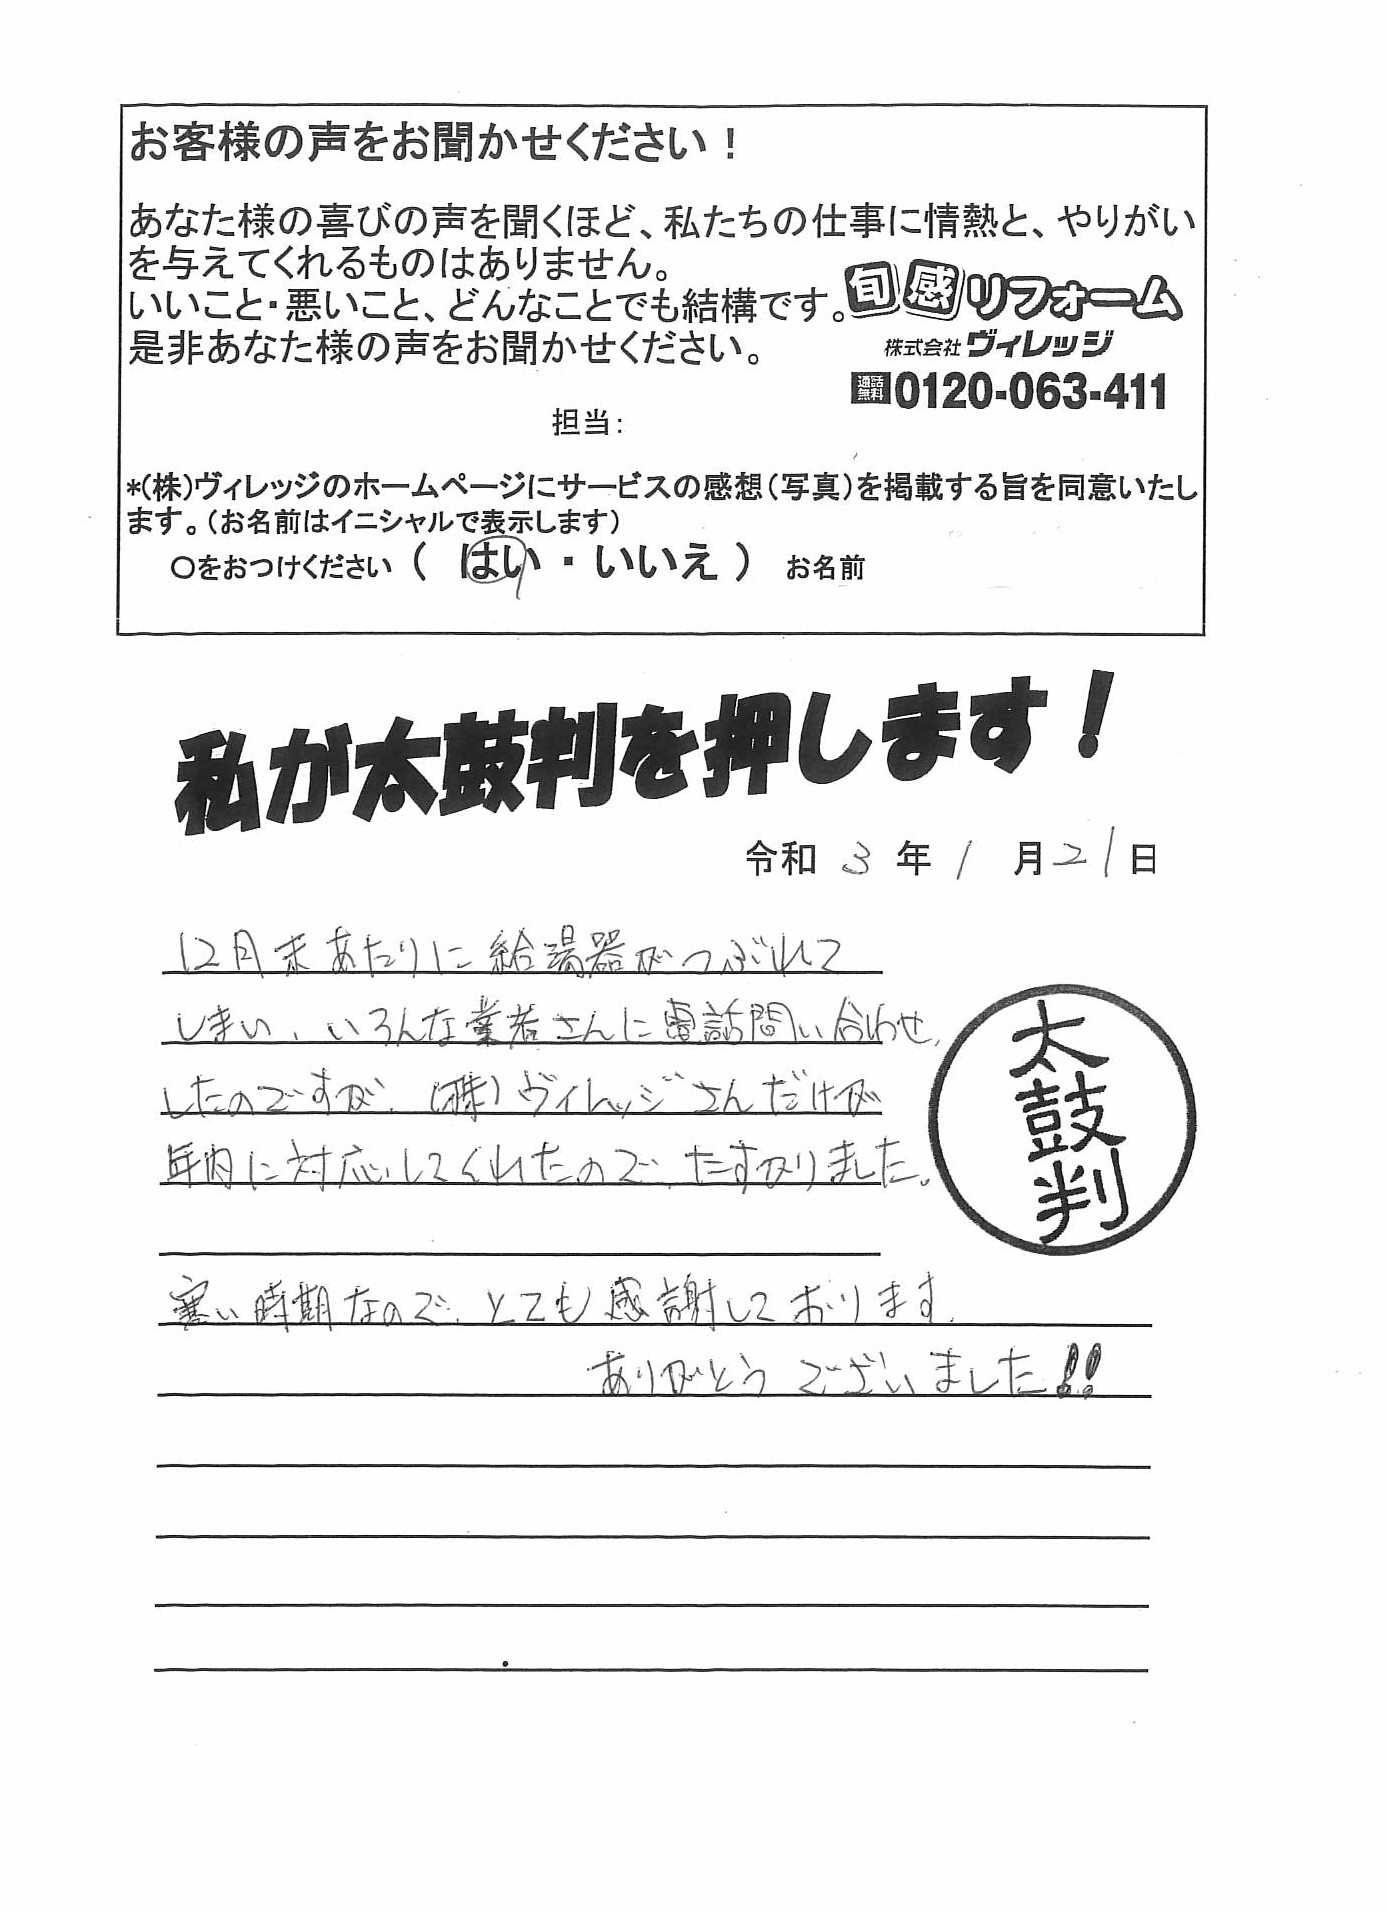 お客様の声をお聞かせください！
あなた様の喜びの声を聞くほど、私たちの仕事に情熱と、やりがい
を与えてくれるものはありません。
いいこと・悪いこと、どんなことでも結構です。
是非あなた様の声をお聞かせください。
旬感リフォーム
株式会社ヴィレッジ
通話無料0120-063-411
担当：
*（株）ヴィレッジのホームページにサービスの感想（写真）を掲載する旨を同意いたし
ます。（お名前はイニシャルで表示します）
〇をおつけください（ はい ・ いいえ ） お名前
私が太鼓判を押します！
令和 3 年 1 月 21 日
12月末あたりに給湯器がつぶれて
しまい、いろんな業者さんに電話問い合わせ、
したのですが、（株）ヴィレッジさんだけが
年内に対応してくれたので、たすかりました。
太鼓判
寒い時期なので、とても感謝しております。
ありがとうございました!!